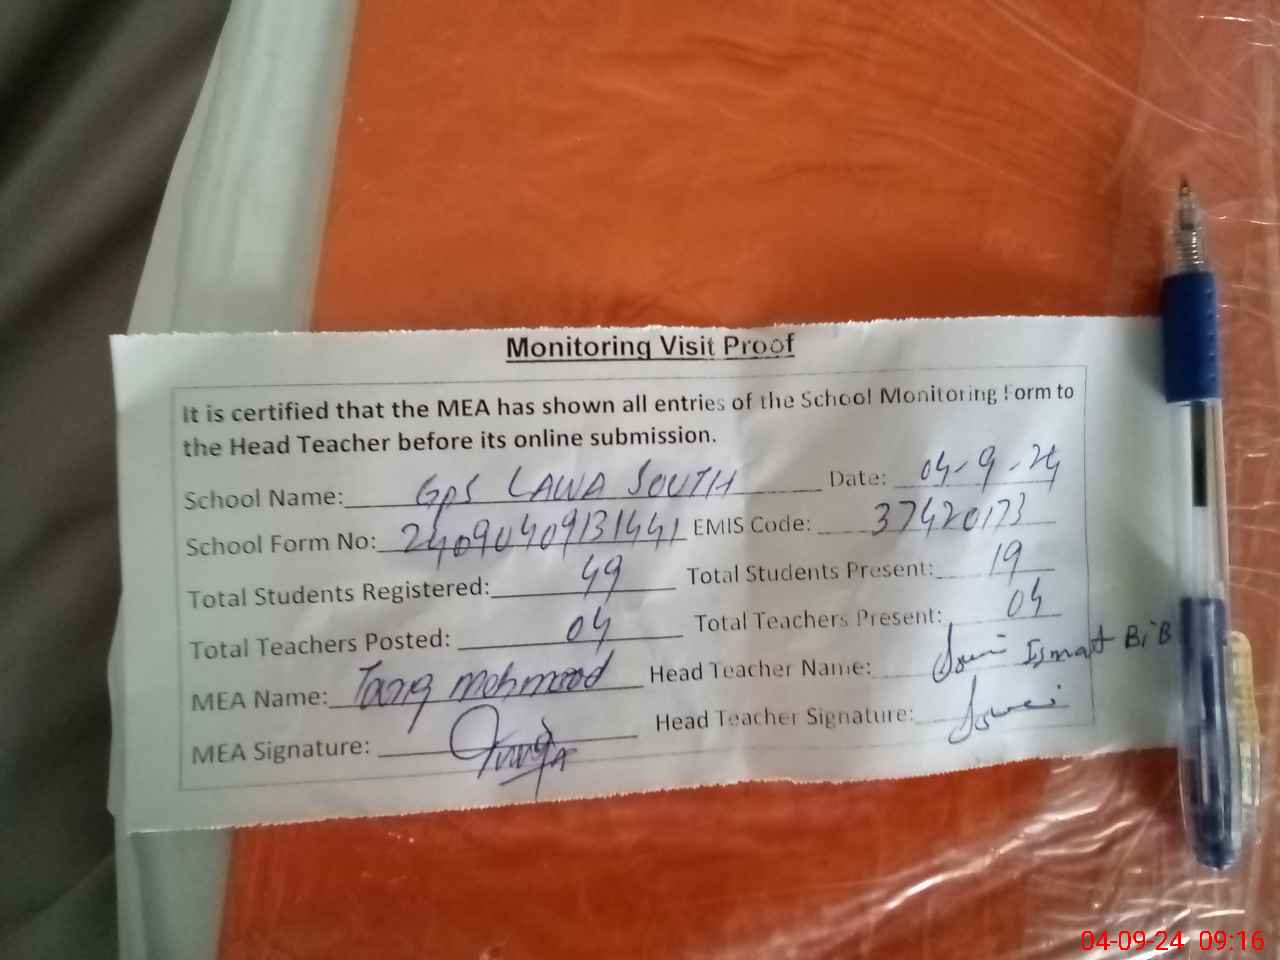 Monitoring Visit Proof
It is certified that the MEA has shown all entries of the School Monitoring Form to
the Head Teacher before its online submission.
School Name: GPS LAWA SOUTH Date: 04-9-24
School Form No: 24090409131441 EMIS Code: 37420173
Total Students Registered: 49 Total Students Present: 19
Total Teachers Posted: 04 Total Teachers Present: 04
MEA Name: Tariq mehmood Head Teacher Name: Ismat BiBi
MEA Signature: Head Teacher Signature:
04-09-24 09:16